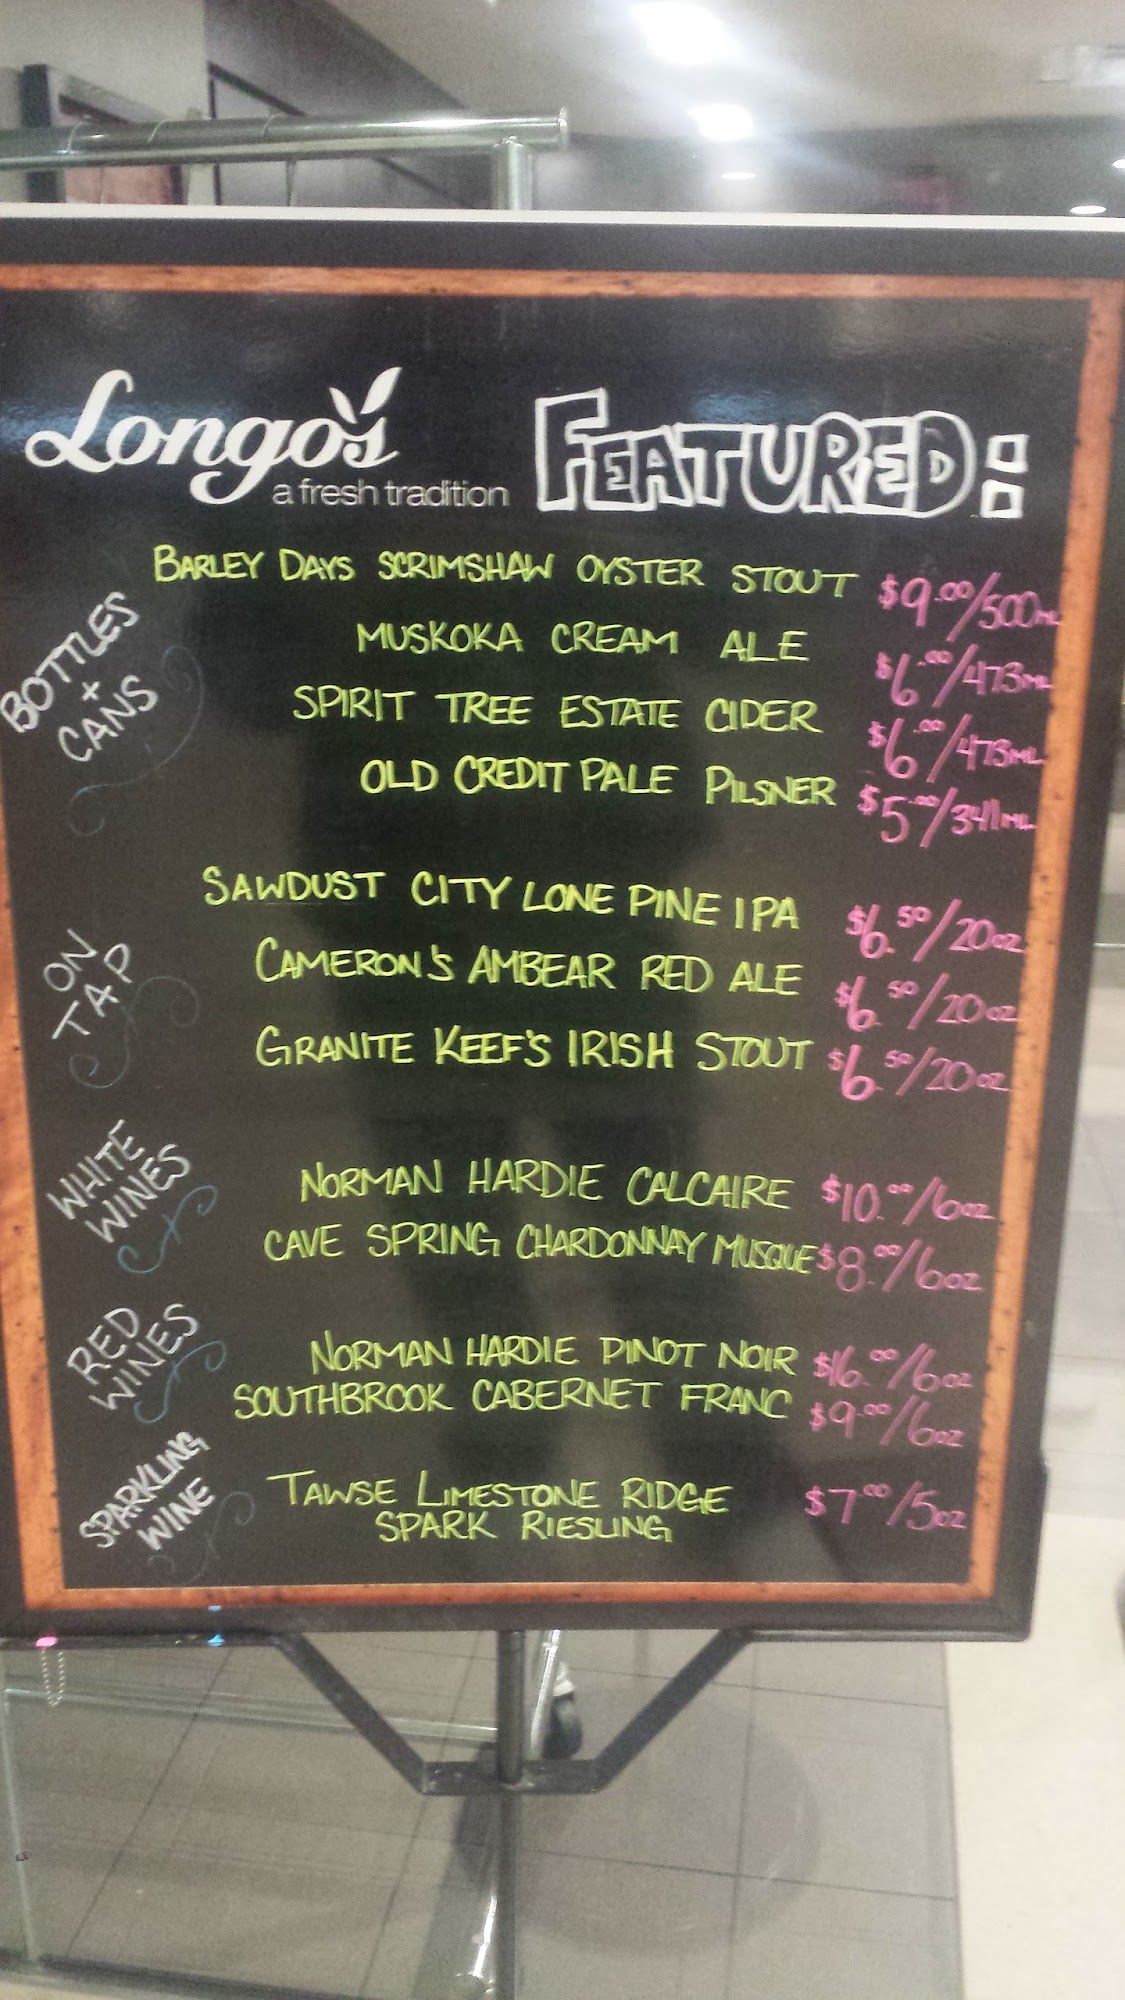 Longo's
a fresh tradition
FEATURED:
BOTTLES
+
CANS
BARLEY DAYS SCRIMSHAW OYSTER STOUT $9.00/500ML
MUSKOKA CREAM ALE $6.00/473ML
SPIRIT TREE ESTATE CIDER $6.00/473ML
OLD CREDIT PALE PILSNER $5.00/341ML
ON
TAP
SAWDUST CITY LONE PINE IPA $6.50/20oz
CAMERON'S AMBEAR RED ALE $6.50/20oz
GRANITE KEEF'S IRISH STOUT $6.50/20oz
WHITE
WINES
NORMAN HARDIE CALCAIRE $10.00/6oz
CAVE SPRING CHARDONNAY MUSQUE $8.00/6oz
RED
WINES
NORMAN HARDIE PINOT NOIR $16.00/6oz
SOUTHBROOK CABERNET FRANC $9.00/6oz
SPARKLING
WINE
TAWSE LIMESTONE RIDGE $7.00/5oz
SPARK RIESLING